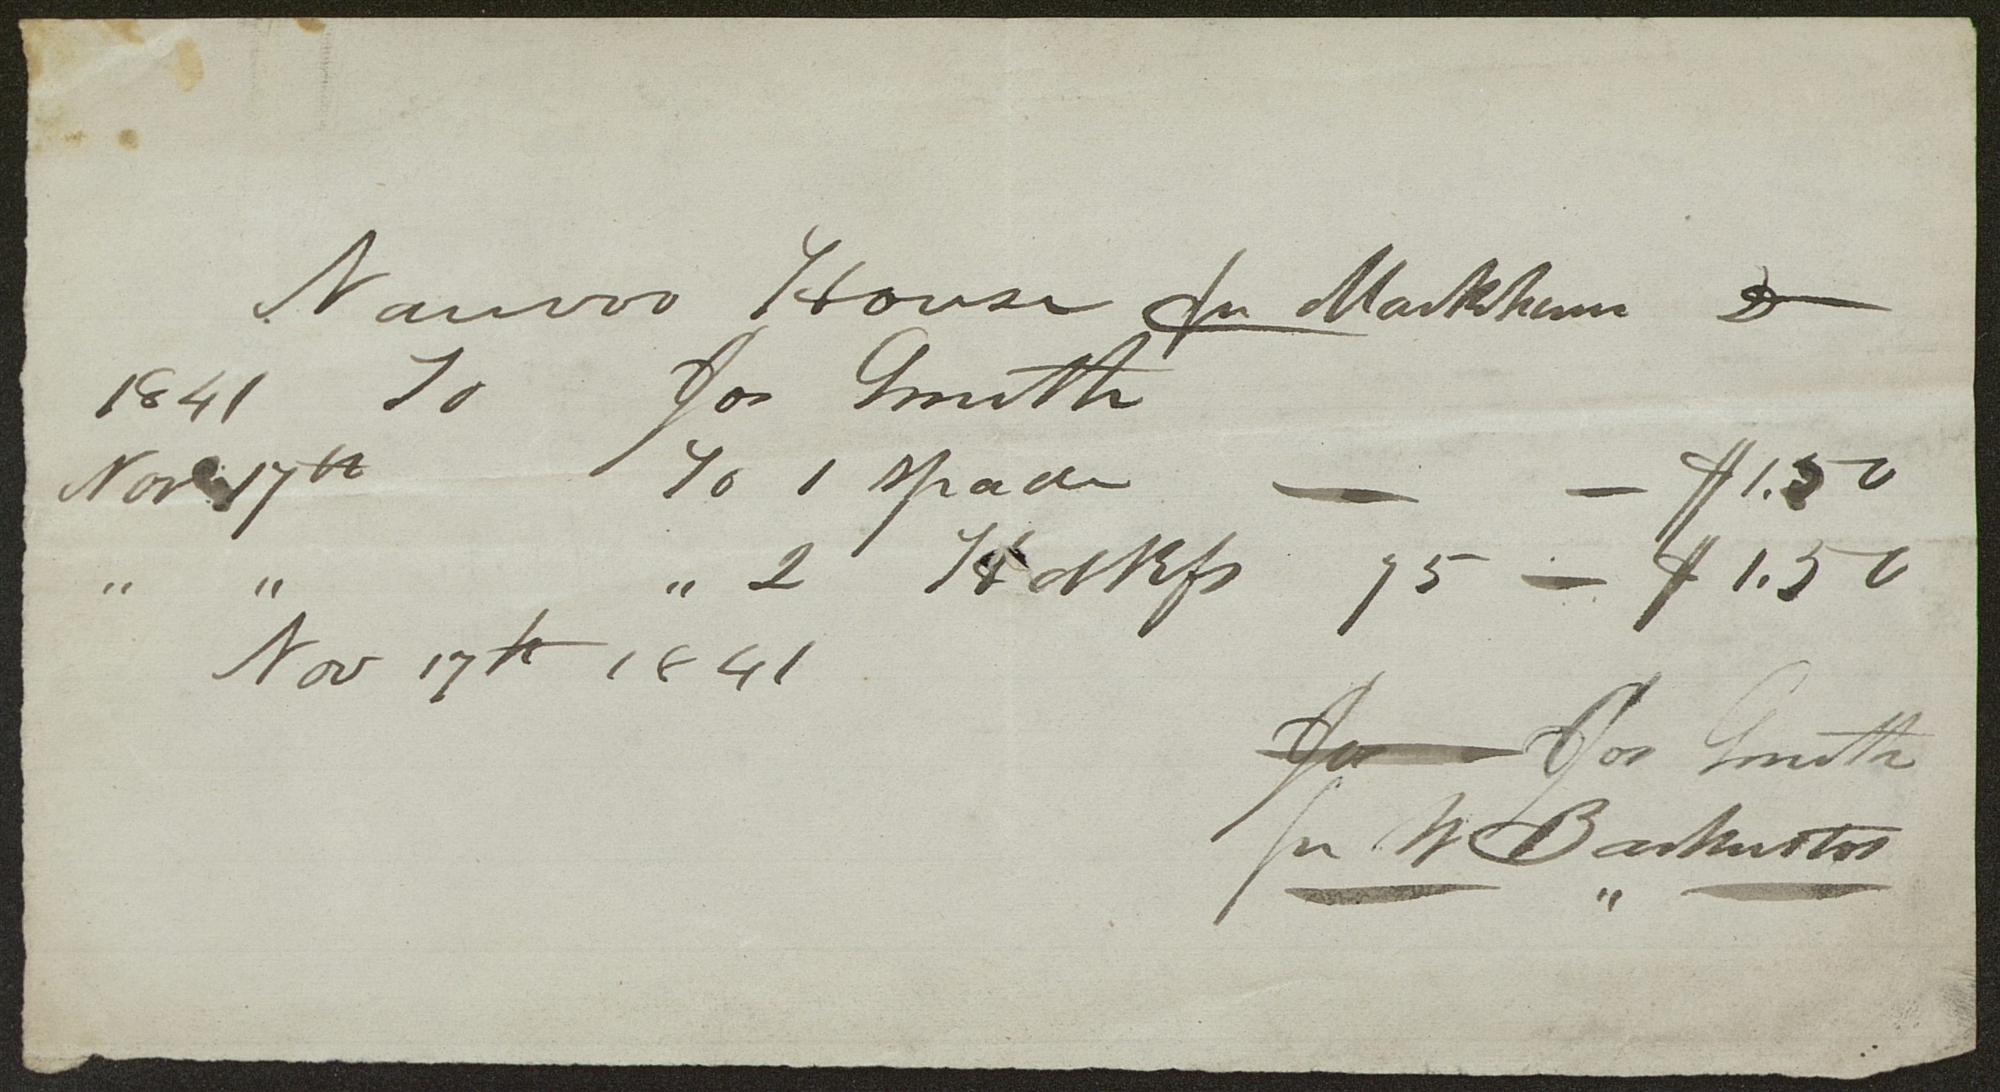 Nauvoo House pr Markham Dr
1841 To Jos Smith
Nov 17th To 1 Spade — — $1.50
" " " 2 Hdkfs 75 — $1.50
Nov 17th 1841
Jos Jos Smith
pr W Backenstos
"